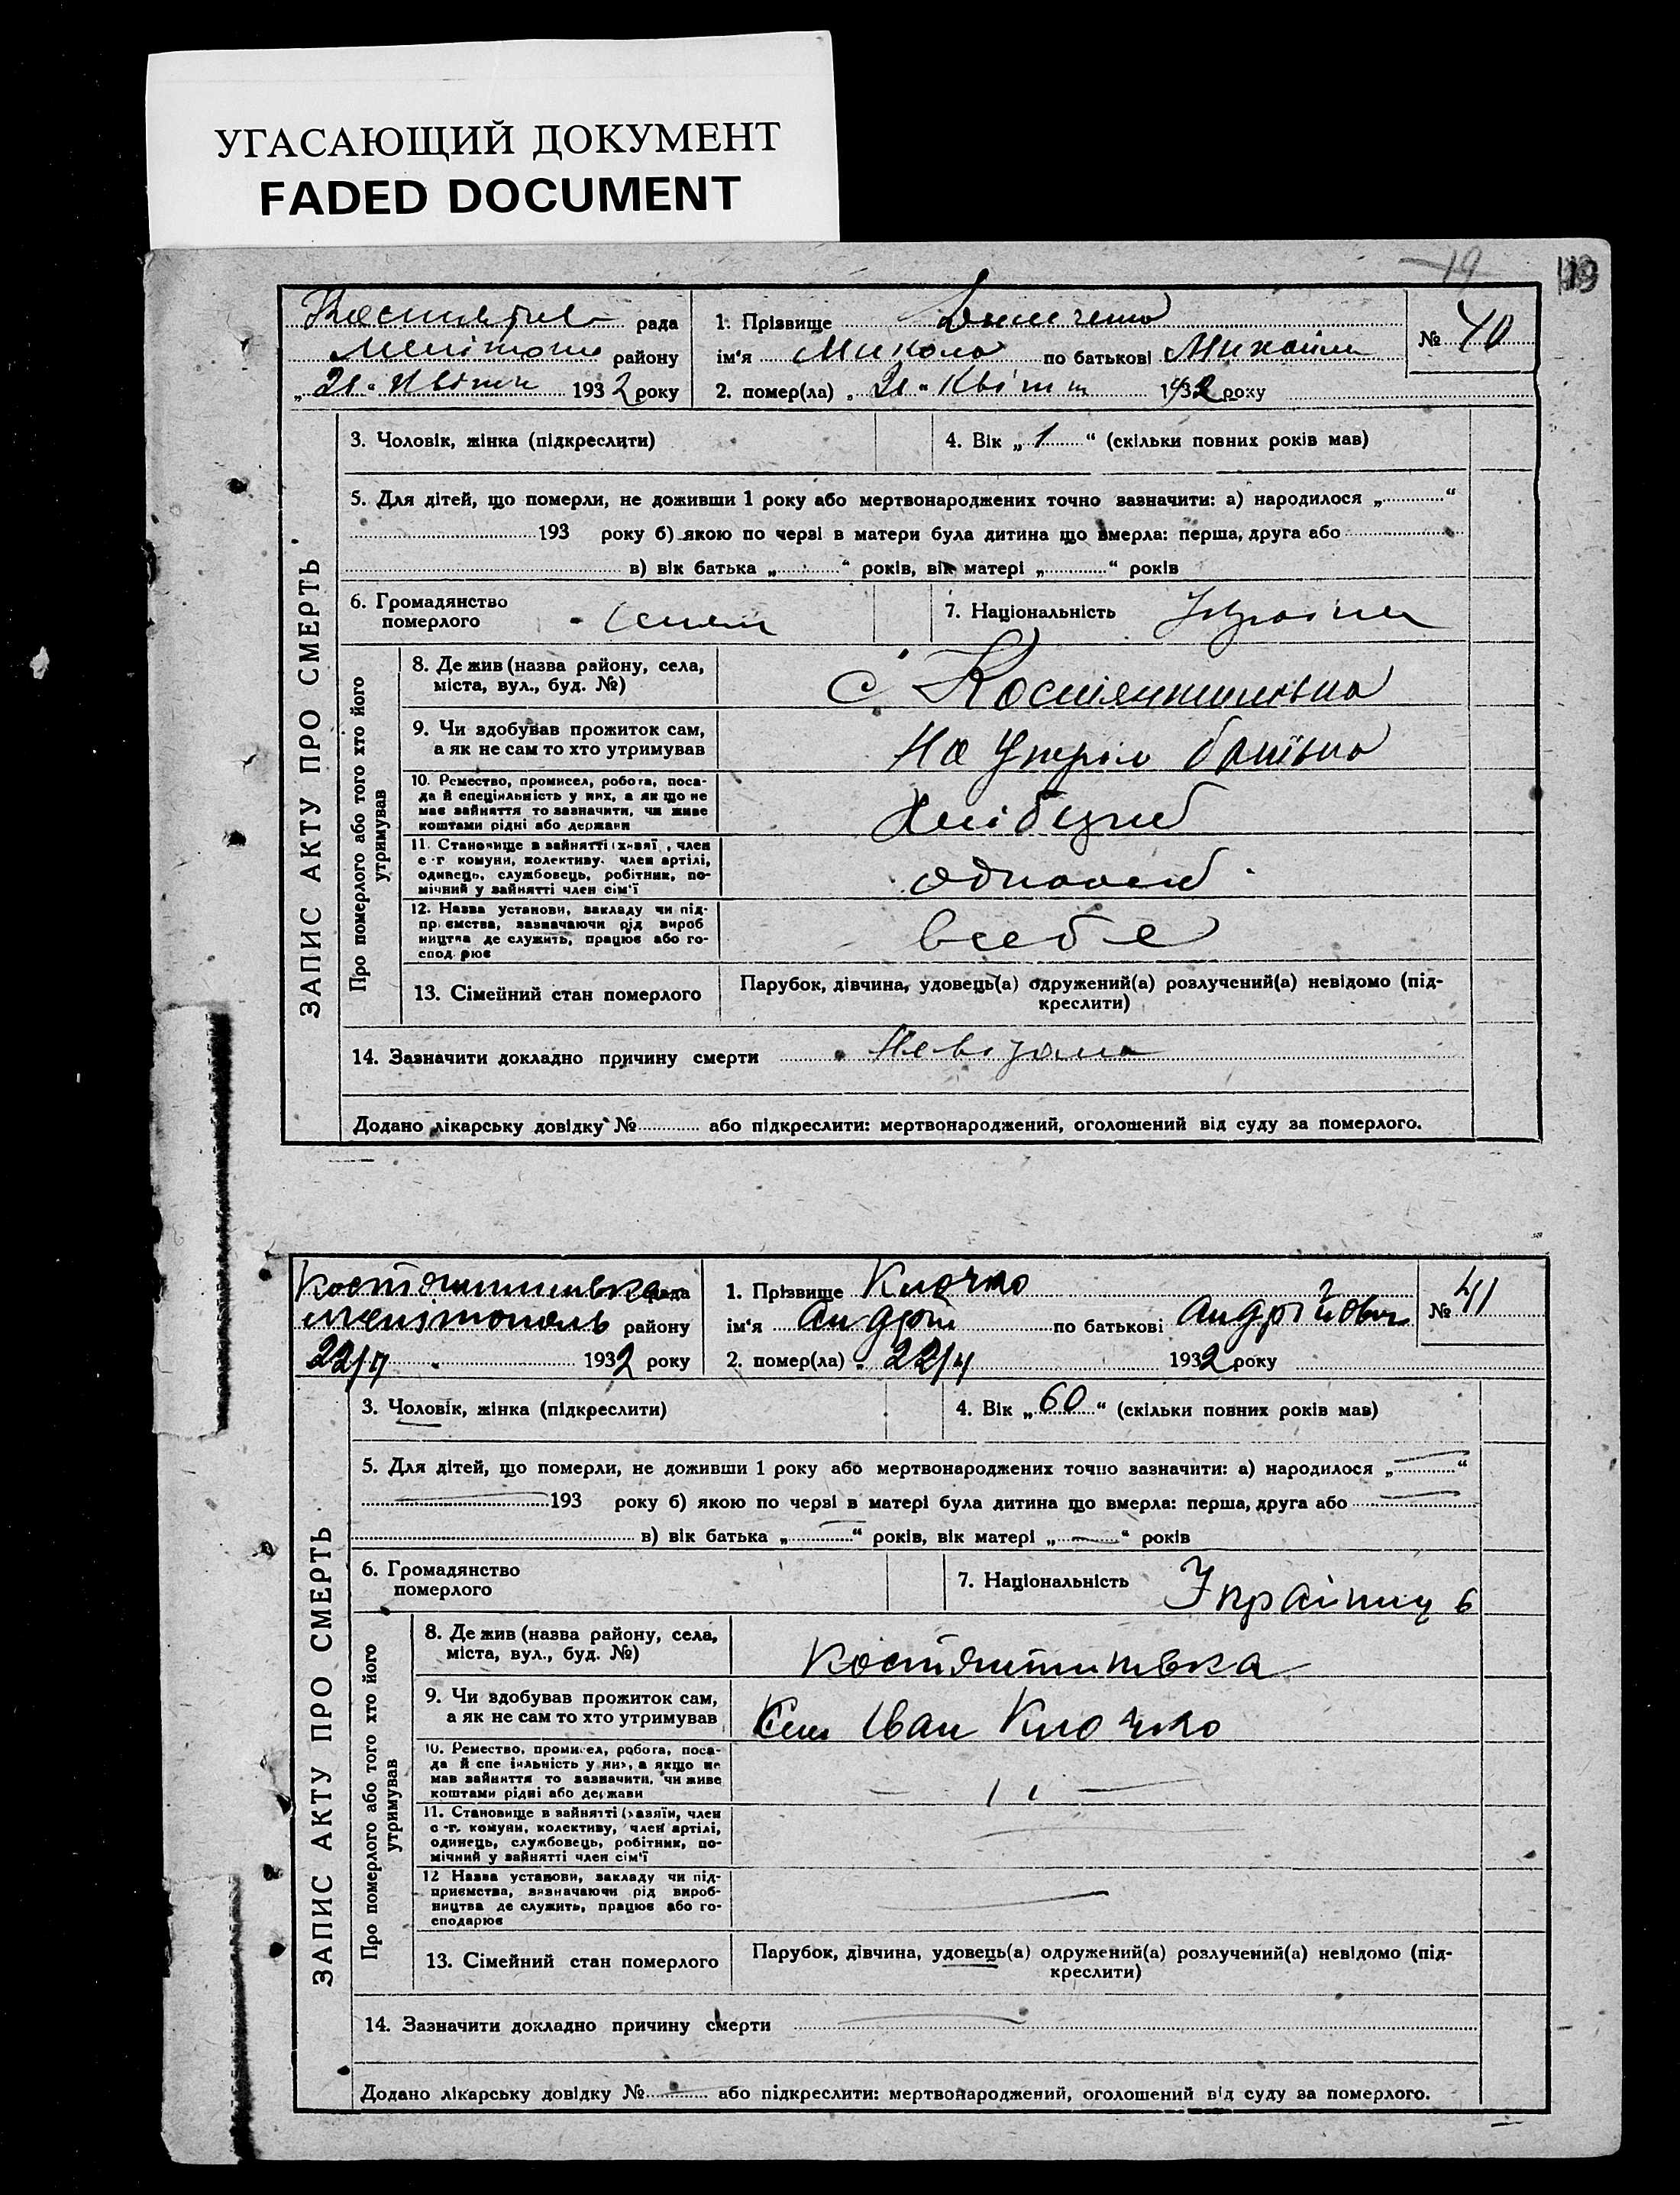 УГАСАЮЩИЙ ДОКУМЕНТ
FADED DOCUMENT
19
119
рада
району
„21“ Квітня 1932 року
1. Прізвище
ім'я Микола по батькові Михайл
2. помер(ла) „21“ Квітня 1932 року
№ 40
ЗАПИС АКТУ ПРО СМЕРТЬ
3. Чоловік, жінка (підкреслити)
4. Вік „1“ (скільки повних років мав)
5. Для дітей, що померли, не доживши 1 року або мертвонароджених точно зазначити: а) народилося „ “
193 року б) якою по черзі в матери була дитина що вмерла: перша, друга або
в) вік батька „ “ років, вік матері „ “ років
6. Громадянство
померлого
7. Національність Україн
Про померлого або того хто його
утримував
8. Де жив (назва району, села,
міста, вул., буд. №)
с Костянтинівка
9. Чи здобував прожиток сам,
а як не сам то хто утримував
На утрим батька
10. Ремество, промисел, робота, поса-
да й спеціяльність у них, а як що не
має зайняття то зазначити, чи живе
коштами рідні або держави
Хлібороб
11. Становище в зайнятті (хазяї, член
с-г комуни, колективу, член артілі,
одинець, службовець, робітник, по-
мічний у зайнятті член сім'ї
одноосиб
12. Назва установи, закладу чи під-
приємства, зазначаючи рід вироб
ництва де служить, працює або го-
сподарює
всебе
13. Сімейний стан померлого
Парубок, дівчина, удовець(а) одружений(а) розлучений(а) невідомо (під-
креслити)
14. Зазначити докладно причину смерти Невідома
Додано лікарську довідку № або підкреслити: мертвонароджений, оголошений від суду за померлого.
Костянтинівка рада
мелітополь району
22/IV 1932 року
1. Прізвище Клочко
ім'я Андрій по батькові Андрійович
2. помер(ла) „ 22/4 1932 року
№ 41
ЗАПИС АКТУ ПРО СМЕРТЬ
3. Чоловік, жінка (підкреслити)
4. Вік „60“ (скільки повних років мав)
5. Для дітей, що померли, не доживши 1 року або мертвонароджених точно зазначити: а) народилося „ “
193 року б) якою по черзі в матері була дитина що вмерла: перша, друга або
в) вік батька „ “ років, вік матері „ “ років
6. Громадянство
померлого
7. Національність
Про померлого або того хто його
утримував
8. Де жив (назва району, села,
міста, вул., буд. №)
Костянтинівка
9. Чи здобував прожиток сам,
а як не сам то хто утримував
Іван Клочко
10. Ремество, промисел, робота, поса-
да й спеціяльність у них, а якщо не
мав зайняття то зазначити, чи живе
коштами рідні або держави
—〃 —
11. Становище в зайнятті (хазяїн, член
с-г. комуни, колективу, член артілі,
одинець, службовець, робітник, по-
мічний у зайнятті член сім'ї
12 Назва установи, закладу чи під-
приємства, зазначаючи рід вироб-
ництва де служить, працює або го-
сподарює
13. Сімейний стан померлого
Парубок, дівчина, удовець(а) одружений(а) розлучений(а) невідомо (під-
креслити)
14. Зазначити докладно причину смерти
Додано лікарську довідку № або підкреслити: мертвонароджений, оголошений від суду за померлого.